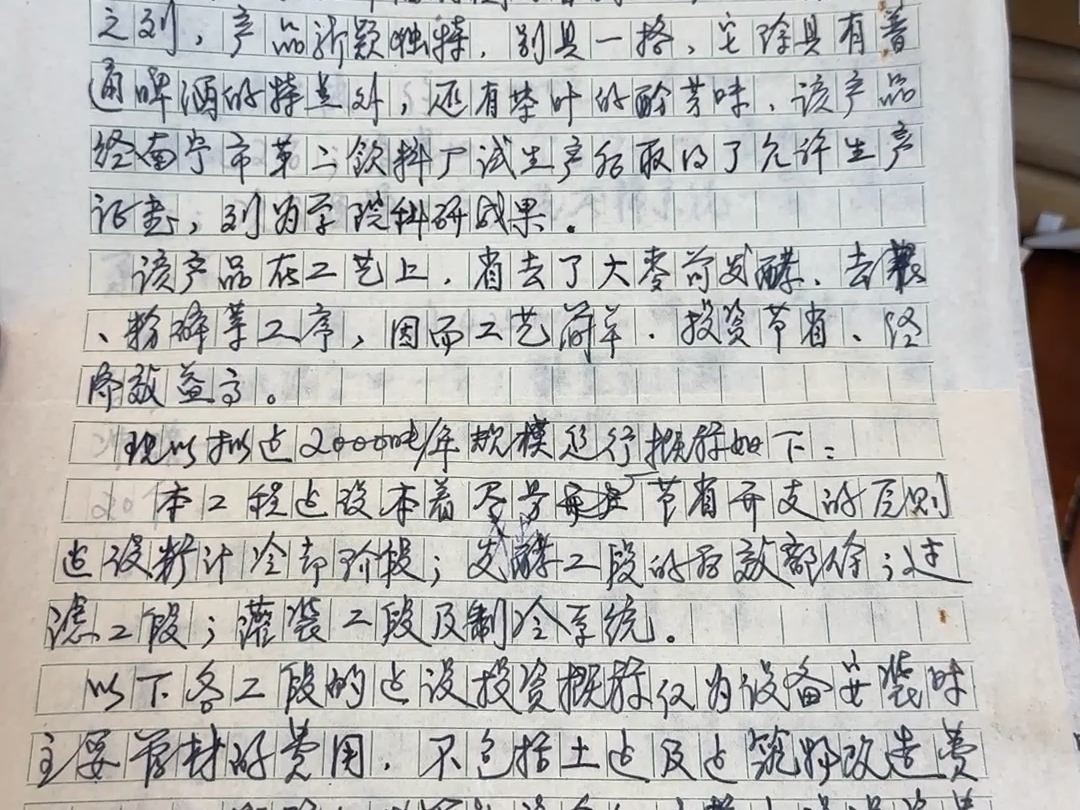 之列，产品新颖独特，别具一格，它除具有普
通啤酒的特点外，还有茶叶的醇芳味，该产品
经南宁市第二饮料厂试生产后取得了允许生产
证书，列为学院科研成果。
该产品在工艺上，省去了大麦前发酵、去
、粉碎等工序，因而工艺简单、投资节省、经
济效益高。
现以拟建2000吨/年规模进行概算如下：
本工程建设本着尽量节省开支的原则
建设 计冷却阶段；发酵工段的 部 ；过
滤工段；灌装工段及制冷系统。
以下各工段的建设投资概算仅为设备安装时
主要管材的费用，不包括土建及建筑物改造费